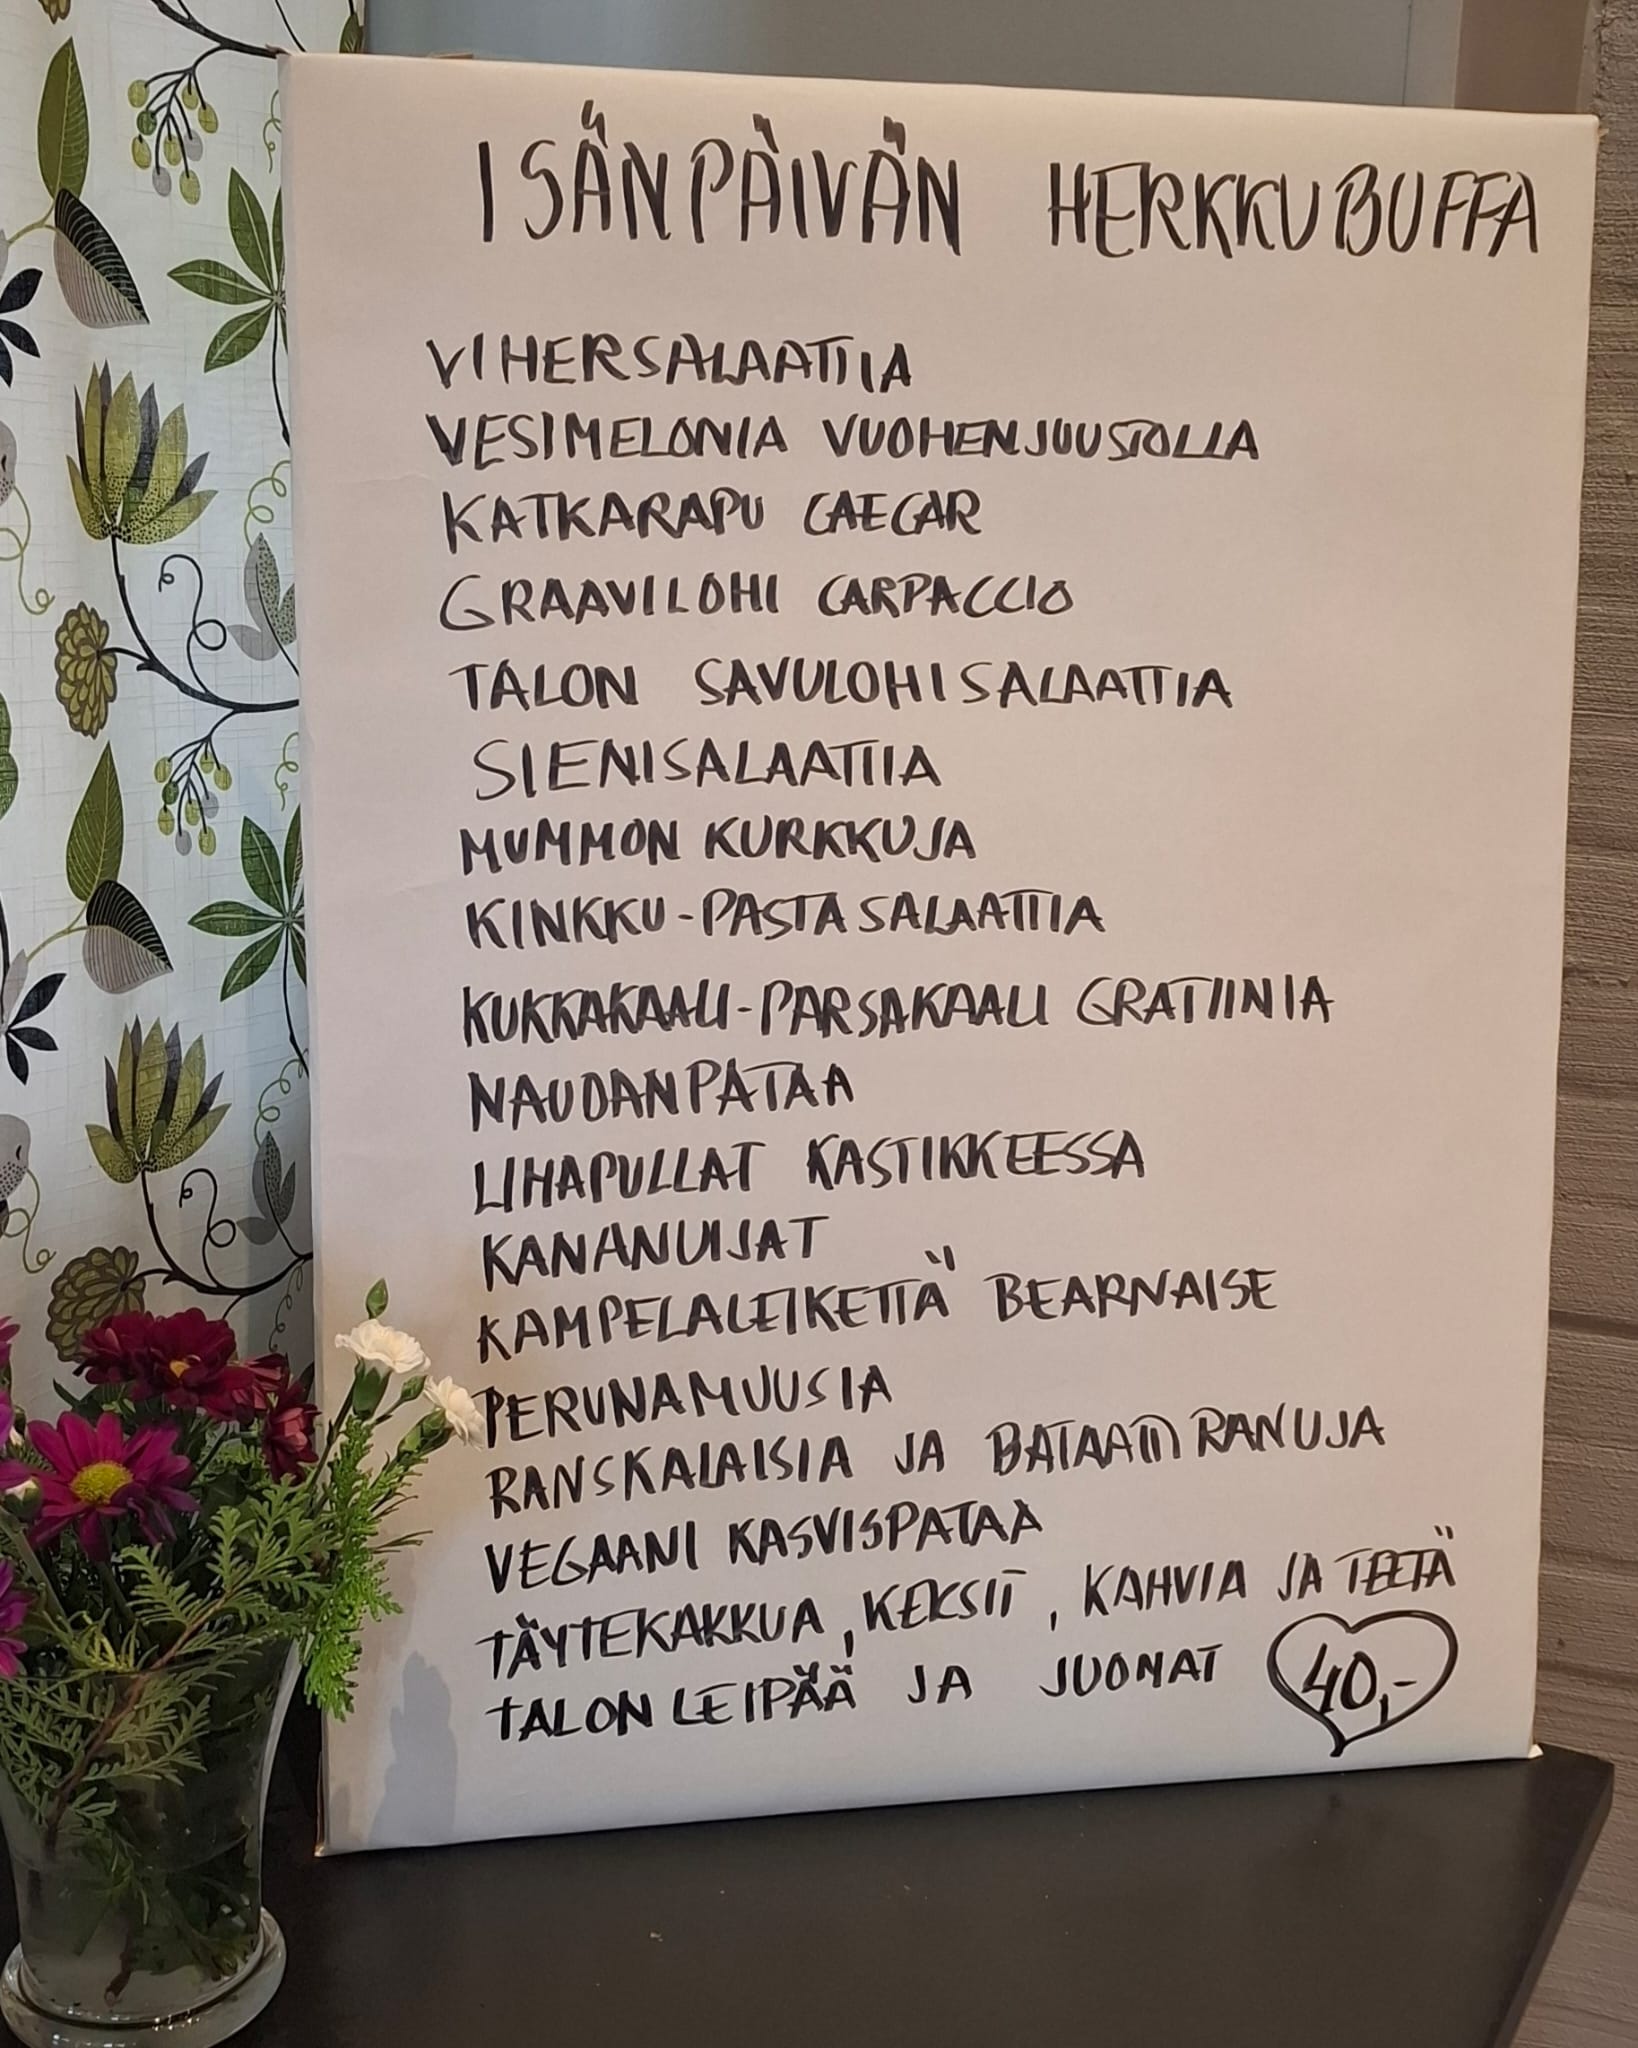 ISÄNPÄIVÄN HERKKUBUFFA
VIHERSALAATTIA
VESIMELONIA VUOHENJUUSTOLLA
KATKARAPU CAECAR
GRAAVILOHI CARPACCIO
TALON SAVULOHISALAATTIA
SIENISALAATTIA
MUMMON KURKKUJA
KINKKU-PASTASALAATTIA
KUKKAKAALI-PARSAKAALI GRATIINIA
NAUDANPATAA
LIHAPULLAT KASTIKKEESSA
KANANUIJAT
KAMPELALEIKETTÄ BEARNAISE
PERUNAMUUSIA
RANSKALAISIA JA BATAATTI RANUJA
VEGAANI KASVISPATAA
TÄYTEKAKKUA, KEKSIT, KAHVIA JA TEETÄ
TALON LEIPÄÄ JA JUOMAT 40,-